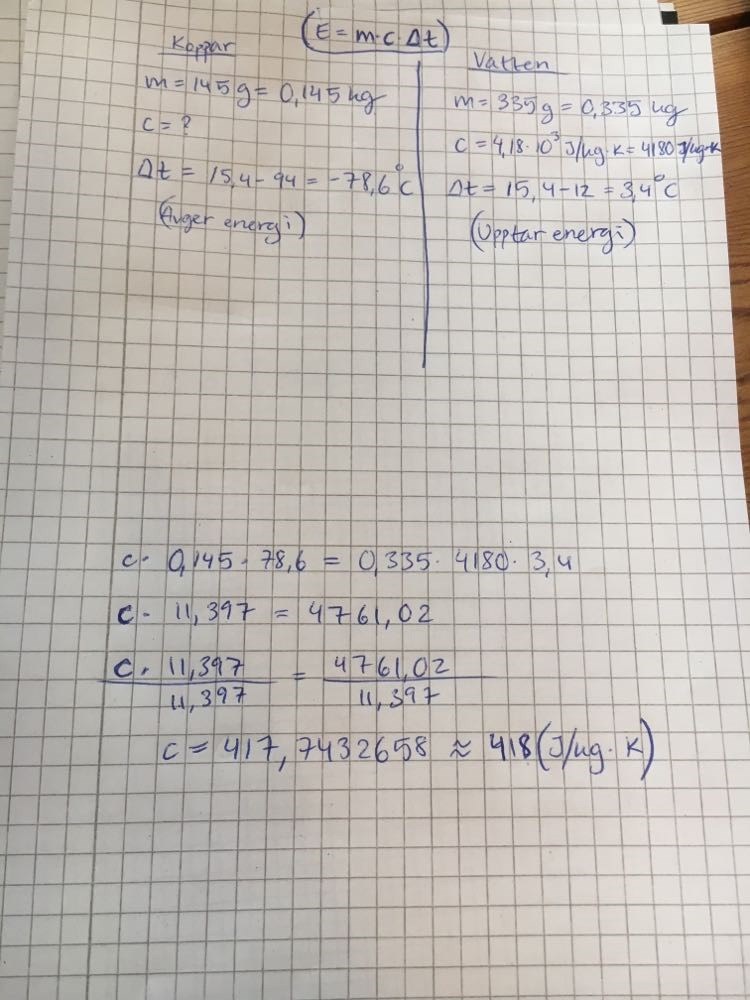 (E = m·c·Δt)
Koppar
m = 145g = 0,145 kg
c = ?
Δt = 15,4 - 94 = -78,6°C
(Avger energi)
Vatten
m = 335g = 0,335 kg
c = 4,18·10³ J/kg·K = 4180 J/kg·K
Δt = 15,4-12 = 3,4°C
(Upptar energi)
c · 0,145 · 78,6 = 0,335 · 4180 · 3,4
c · 11,397 = 4761,02
c · 11,397 / 11,397 = 4761,02 / 11,397
c = 417,7432658 ≈ 418 (J/kg·K)